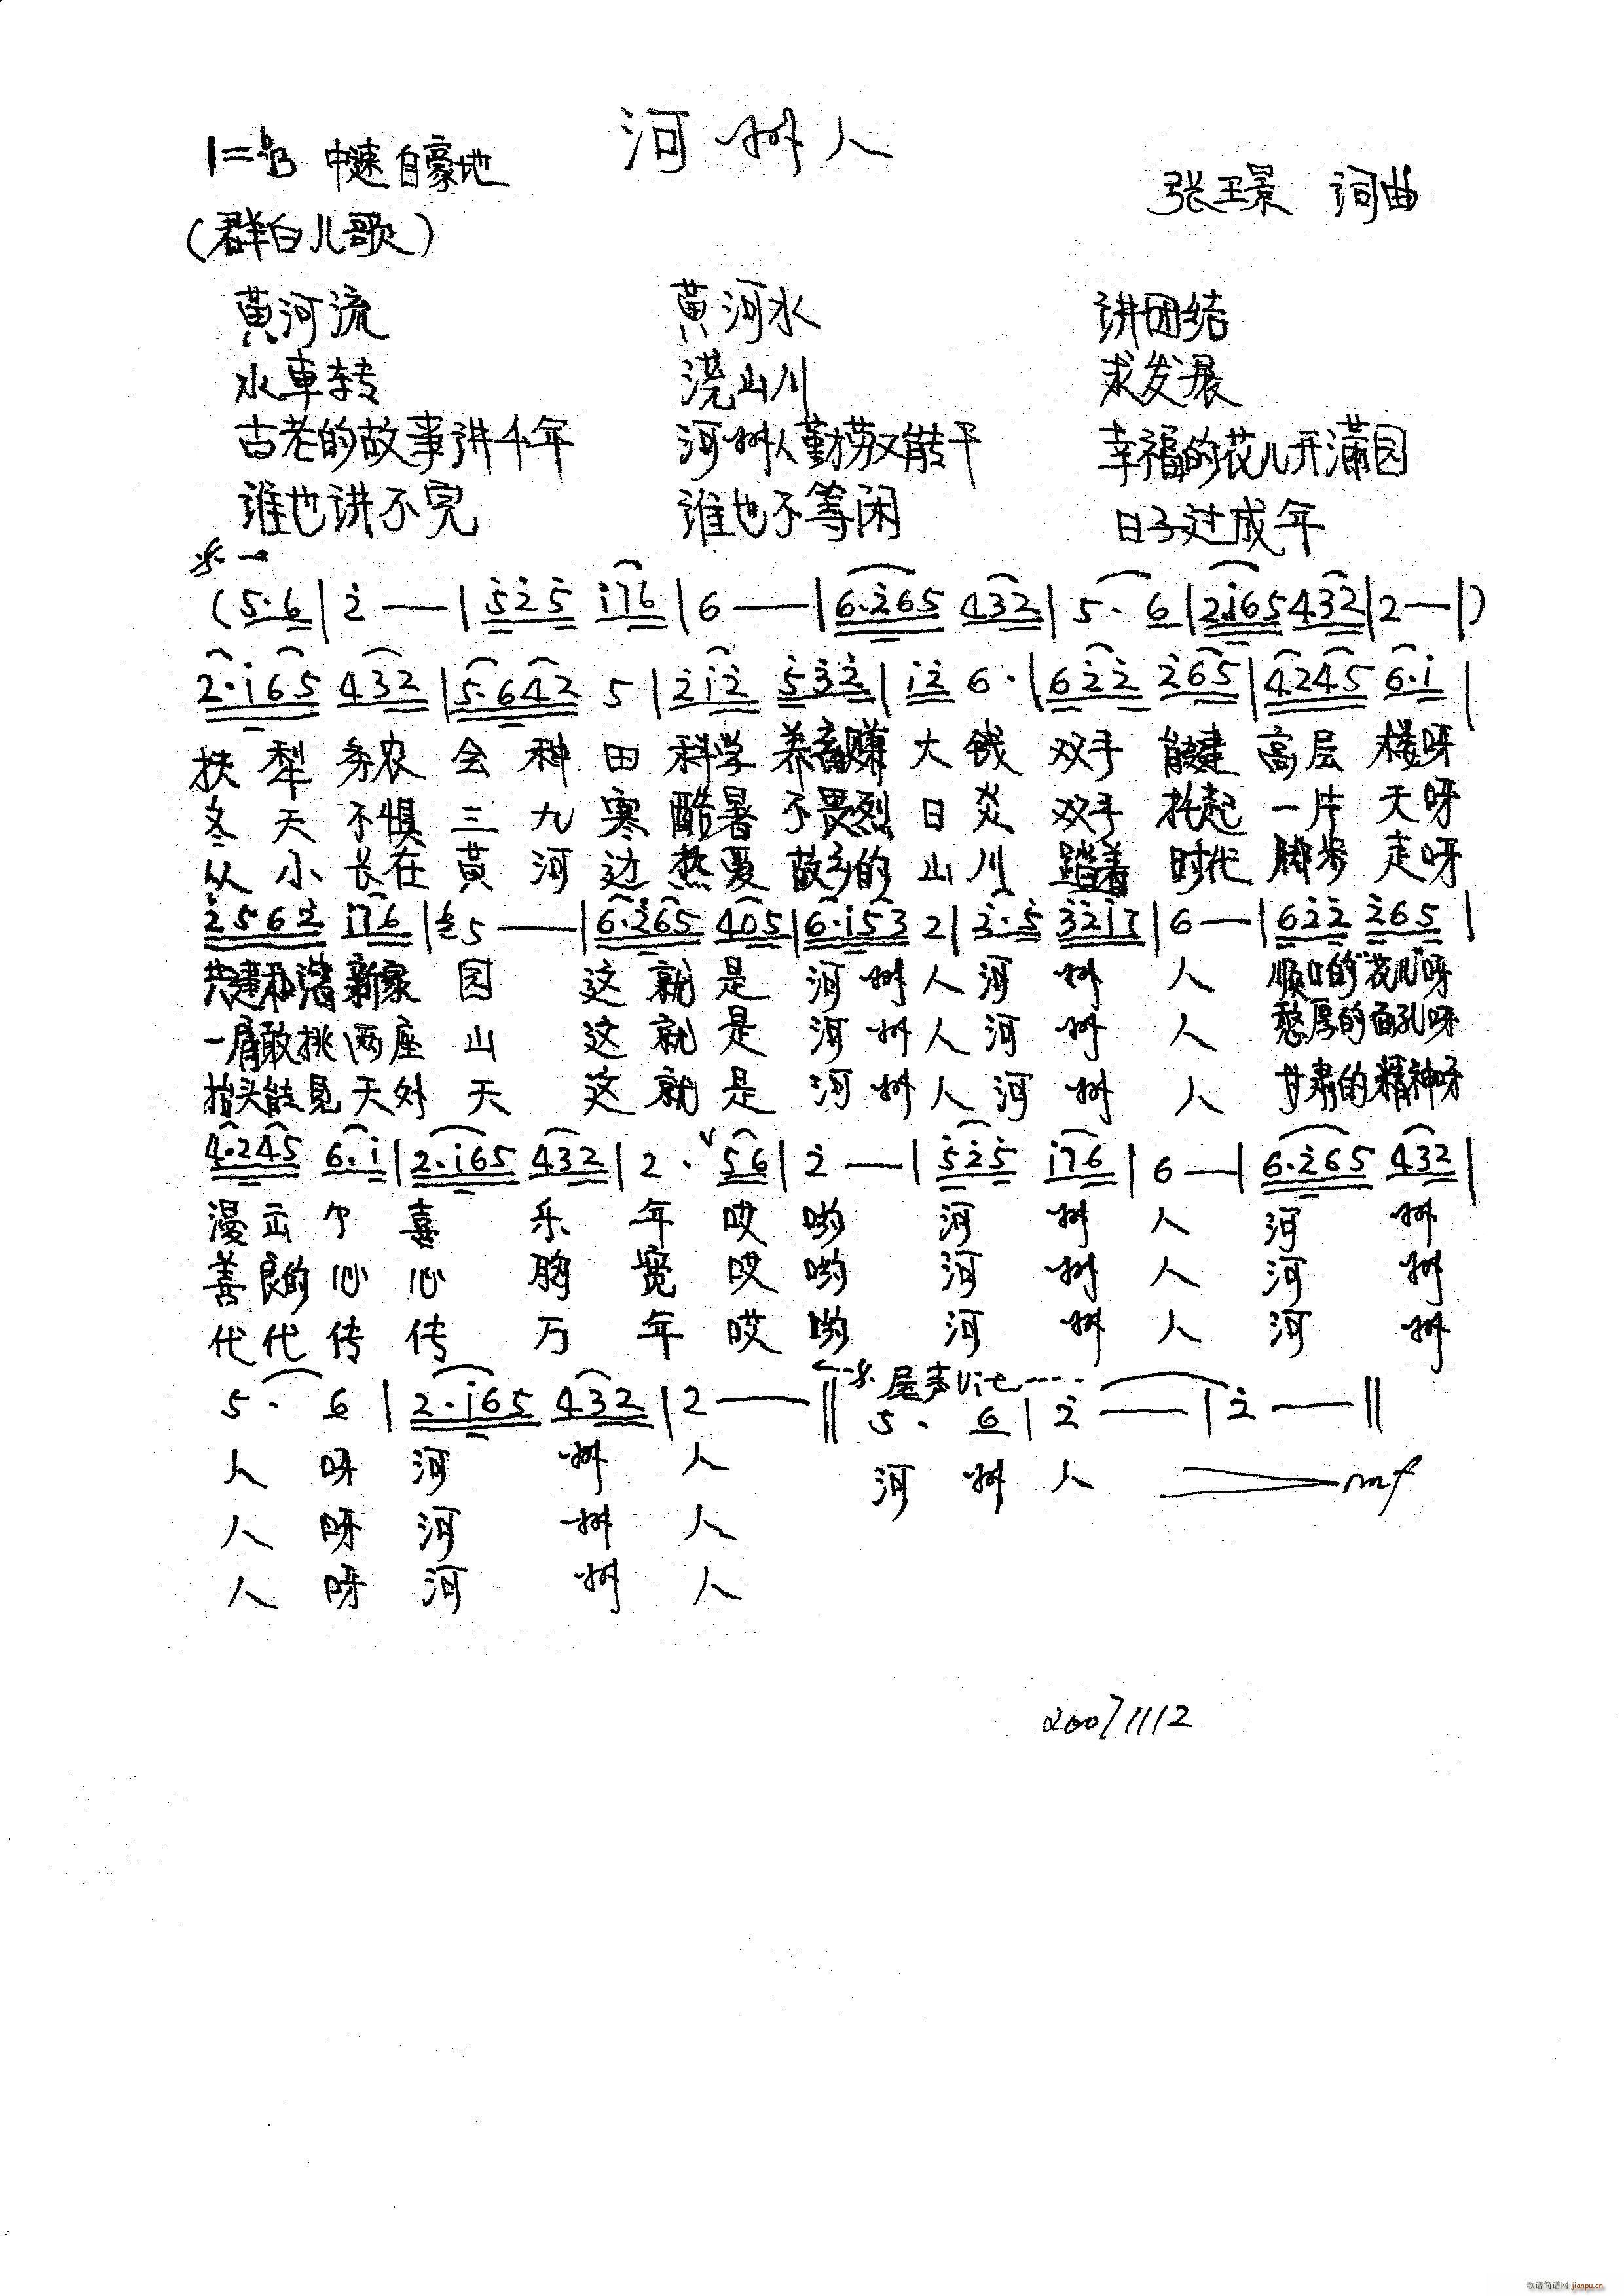 河川人
1=♭B 中速 自豪地
张玉景 词曲
(群白儿歌)
黄河流 黄河水 讲团结
水車转 浇山川 求发展
古老的故事讲千年 河州人勤劳又能干 幸福的花儿开满园
谁也讲不完 谁也不等闲 日子过成年
(5·6|2̇ —|5̇2̇5̇ i76|6 —|6·2̇65 432|5· 6|2·i65 432|2 —|)
2·i65 432|5·642 5|2̇i2̇ 5̇3̇2̇|i2̇ 6·|62̇2̇ 2̇65|4245 6·i|
扶犁务农会种田科学养畜赚大钱双手能建高层楼呀
冬天不惧三九寒酷暑不畏烈日炎双手托起一片天呀
从小长在黄河边热爱故乡的山川踏着时代脚步走呀
2̇562̇ i76|5 —|6·2̇65 405|6·i53 2|2̇·5̇ 3̇2̇i7|6 —|62̇2̇ 2̇65|
共建和谐新家园 这就是河州人河州人 顺口的"花儿"呀
一肩敢挑两座山 这就是河州人河州人 憨厚的面孔呀
抬头能見天外天 这就是河州人河州人 甘肃的精神呀
4·245 6·i|2·i65 432|2· ∨ 56|2̇ —|5̇2̇5̇ i76|6 —|6·2̇65 432|
漫云个喜乐年哎哟河州人河州
善良的心心胸宽哎哟河州人河州
代代传传万年哎哟河州人河州
5· 6|2·i65 432|2 —‖ 尾声Vit.... 5· 6|2̇ —|2̇ —‖
人呀河州人 河州人 mf
人呀河州人
人呀河州人
2007/11/2
歌谱简谱网 jianpu.cn